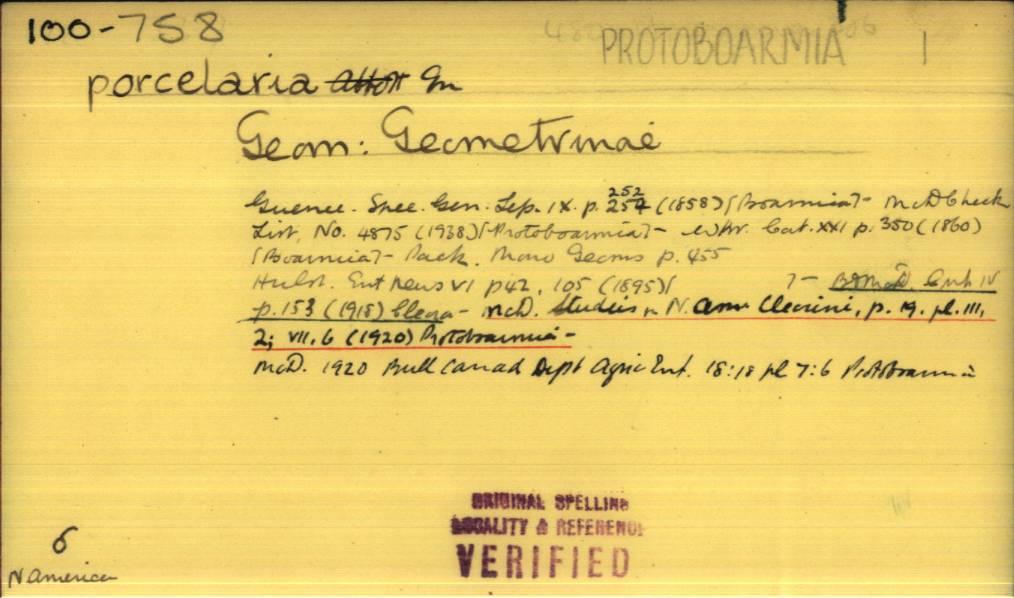 100-758
PROTOBOARMIA 1
porcelaria Abbot Gn
Geom: Geometrinae
Guenee. Spec. Gen. Lep. IX. p. 254 252 (1858) [Boarmia] - McD Check
List, No. 4875 (1938) [Protoboarmia] - Wkr. Cat. XXI p. 350 (1860)
[Boarmia] - Pack. Mono Geoms p. 455
Hulst. Ent News VI p 42, 105 (1895) [ ] - B&McD. Cont IV
p. 153 (1918) Cleora - McD. Studies in N. Am Cleorini, p. 19. pl. III,
2; VII, 6 (1920) Protoboarmia -
McD. 1920 Bull Canad Dept Agric Ent. 18:18 pl 7:6 Protoboarmia
ORIGINAL SPELLING
LOCALITY & REFERENCE
VERIFIED
6
N America